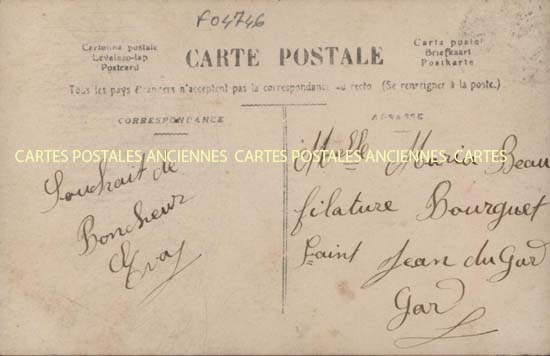 F04746
Cartonne postale
Levelezo-lap
Postcard
CARTE POSTALE
Carta postale
Briefkaart
Postkarte
Tous les pays étrangers n'acceptent pas la correspondance au recto (Se renseigner à la poste.)
CORRESPONDANCE
ADRESSE
CARTES POSTALES ANCIENNES CARTES POSTALES ANCIENNES
Souhait de
Bonheur
Melle Maria Beau
filature Bourguet
Saint Jean du Gard
Gard